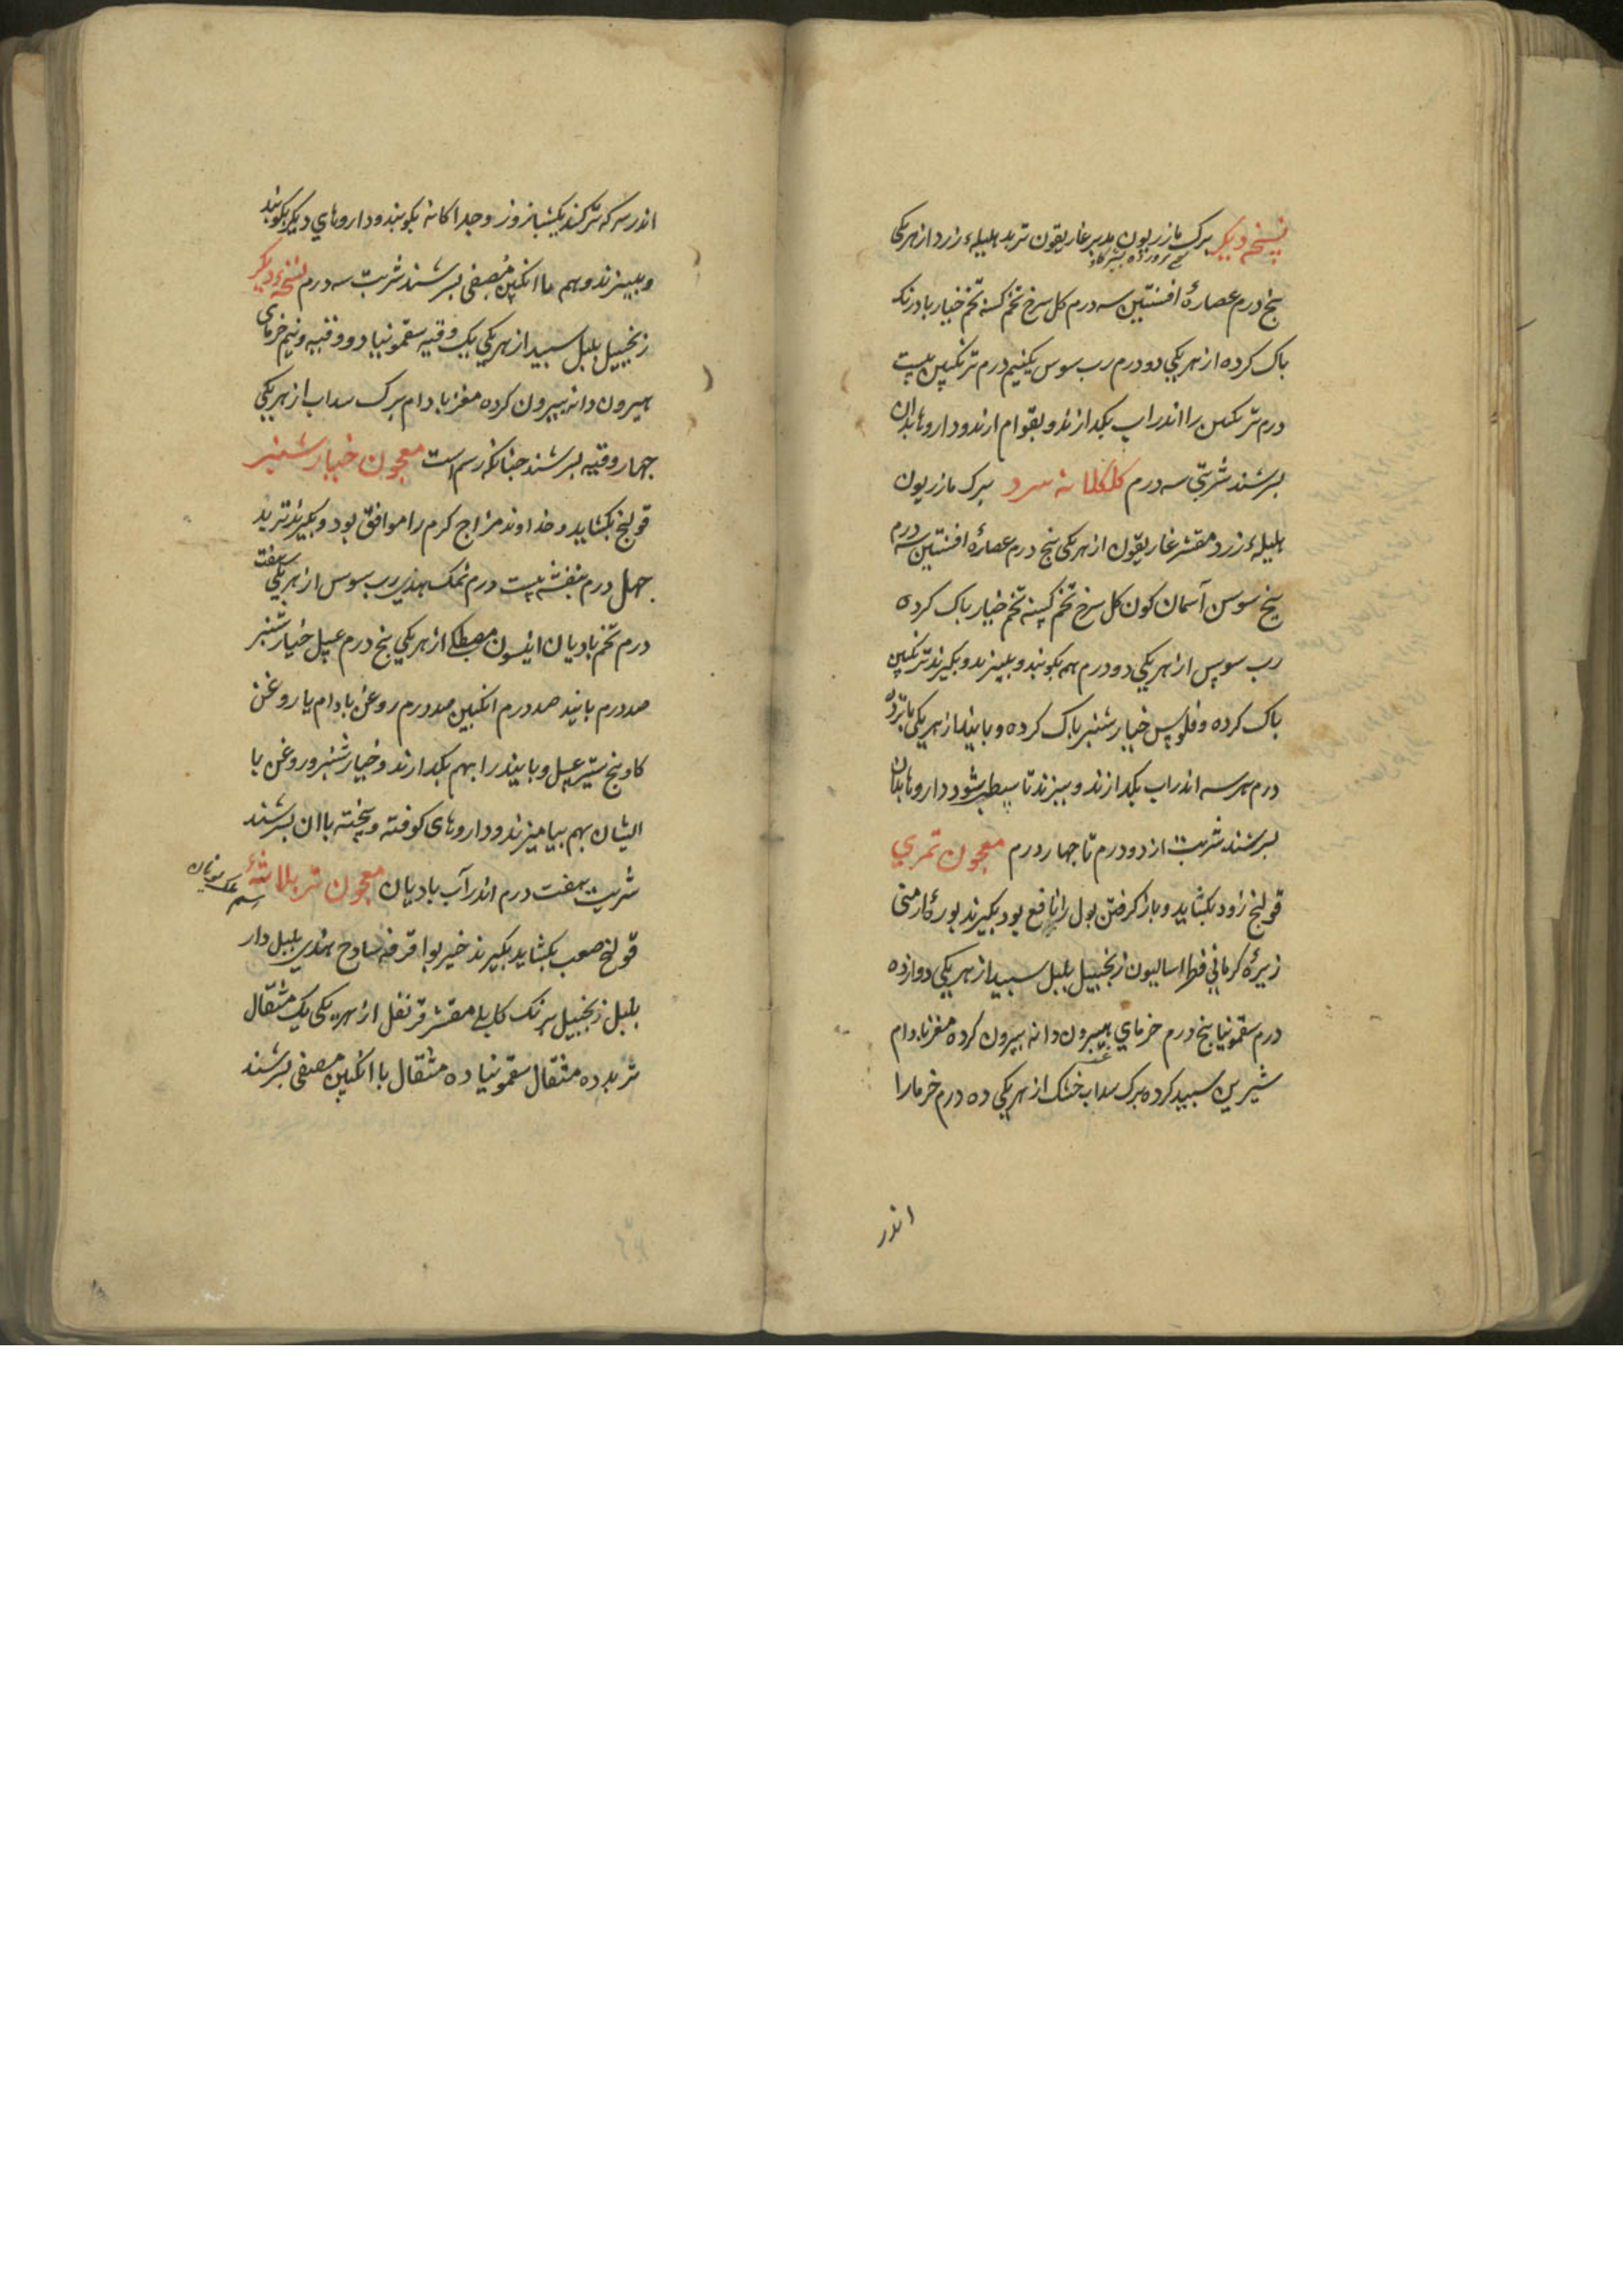 نسخه دیکر برک مازریون مدبر غاریقون تربد هلیلهٔ زرد از هریکی
بنج درم عصارهٔ افسنتین سه درم کل سرخ تخم کسنه تخم خیار بادرنک
باک کرده از هریکی دو درم رب سوس یکنیم درم ترنکبین بیست
درم ترنکبین را اندر اب بکدازند و بقوام ارند و داروها بدان
بسرشند شربتی سه درم کلکلانه سرد برک مازریون
هلیلهٔ زرد مقشر غاریقون از هریکی بنج درم عصارهٔ افسنتین سه درم
بیخ سوسن آسمان کون کل سرخ تخم کسنه تخم خیار باک کرده
رب سوس از هریکی دو درم همه بکوبند و ببیزند و بکیرند ترنکبین
باک کرده و فلوس خیارشنبر باک کرده و بانید از هریکی بانزده
درم هر سه اندر اب بکدازند و ببزند تا سطبر شود داروها بدان
بسرشند شربت از دو درم تا جهار درم معجون تمری
قولنج زود بکشاید و باز کرفتن بول را نافع بود بکیرند بورهٔ ارمنی
زیرهٔ کرمانی فطراسالیون زنجبیل بلبل سبید از هریکی دوازده
درم سقمونیا بنج درم خرمای هیرون دانه بیرون کرده مغز بادام
شیرین سبید کرده برک سداب خشک از هریکی ده درم خرما را
اندر
اندر سرکه تر کنند یکشبانروز و جداکانه بکوبند و داروهای دیکر بکوبند
و ببیزند و بهم با انکبین مصفی بسرشند شربت سه درم نسخهٔ دیکر
زنجبیل بلبل سبید از هریکی یک وقیه سقمونیا دو وقیه و نیم خرمای
هیرون دانه بیرون کرده مغز بادام برک سداب از هریکی
جهار وقیه بسرشند جنانکه رسم است معجون خیارشنبر
قولنج بکشاید و خداوند مزاج کرم را موافق بود و بکیرند تربد
جهل درم بنفشه بیست درم نمک هندی رب سوس از هریکی هفت
درم تخم بادیان انیسون مصطکی از هریکی بنج درم عسل خیارشنبر
صد درم بانید صد درم انکبین صد درم روغن بادام یا روغن
کاو بنج ستیر عسل و بانید را بهم بکدازند و خیارشنبر و روغن با
ایشان بهم بیامیزند و داروهای کوفته و بیخته با ان بسرشند
شربت هفت درم اندر آب بادیان معجون تربلاثهٔ
قولنج صعب بکشاید بکیرند خیربوا قرفه سادج هندی بلبل دار
بلبل زنجبیل برنک کابلی مقشر قرنفل از هریکی یک مثقال
تربد ده مثقال سقمونیا ده مثقال با انکبین مصفی بسرشند